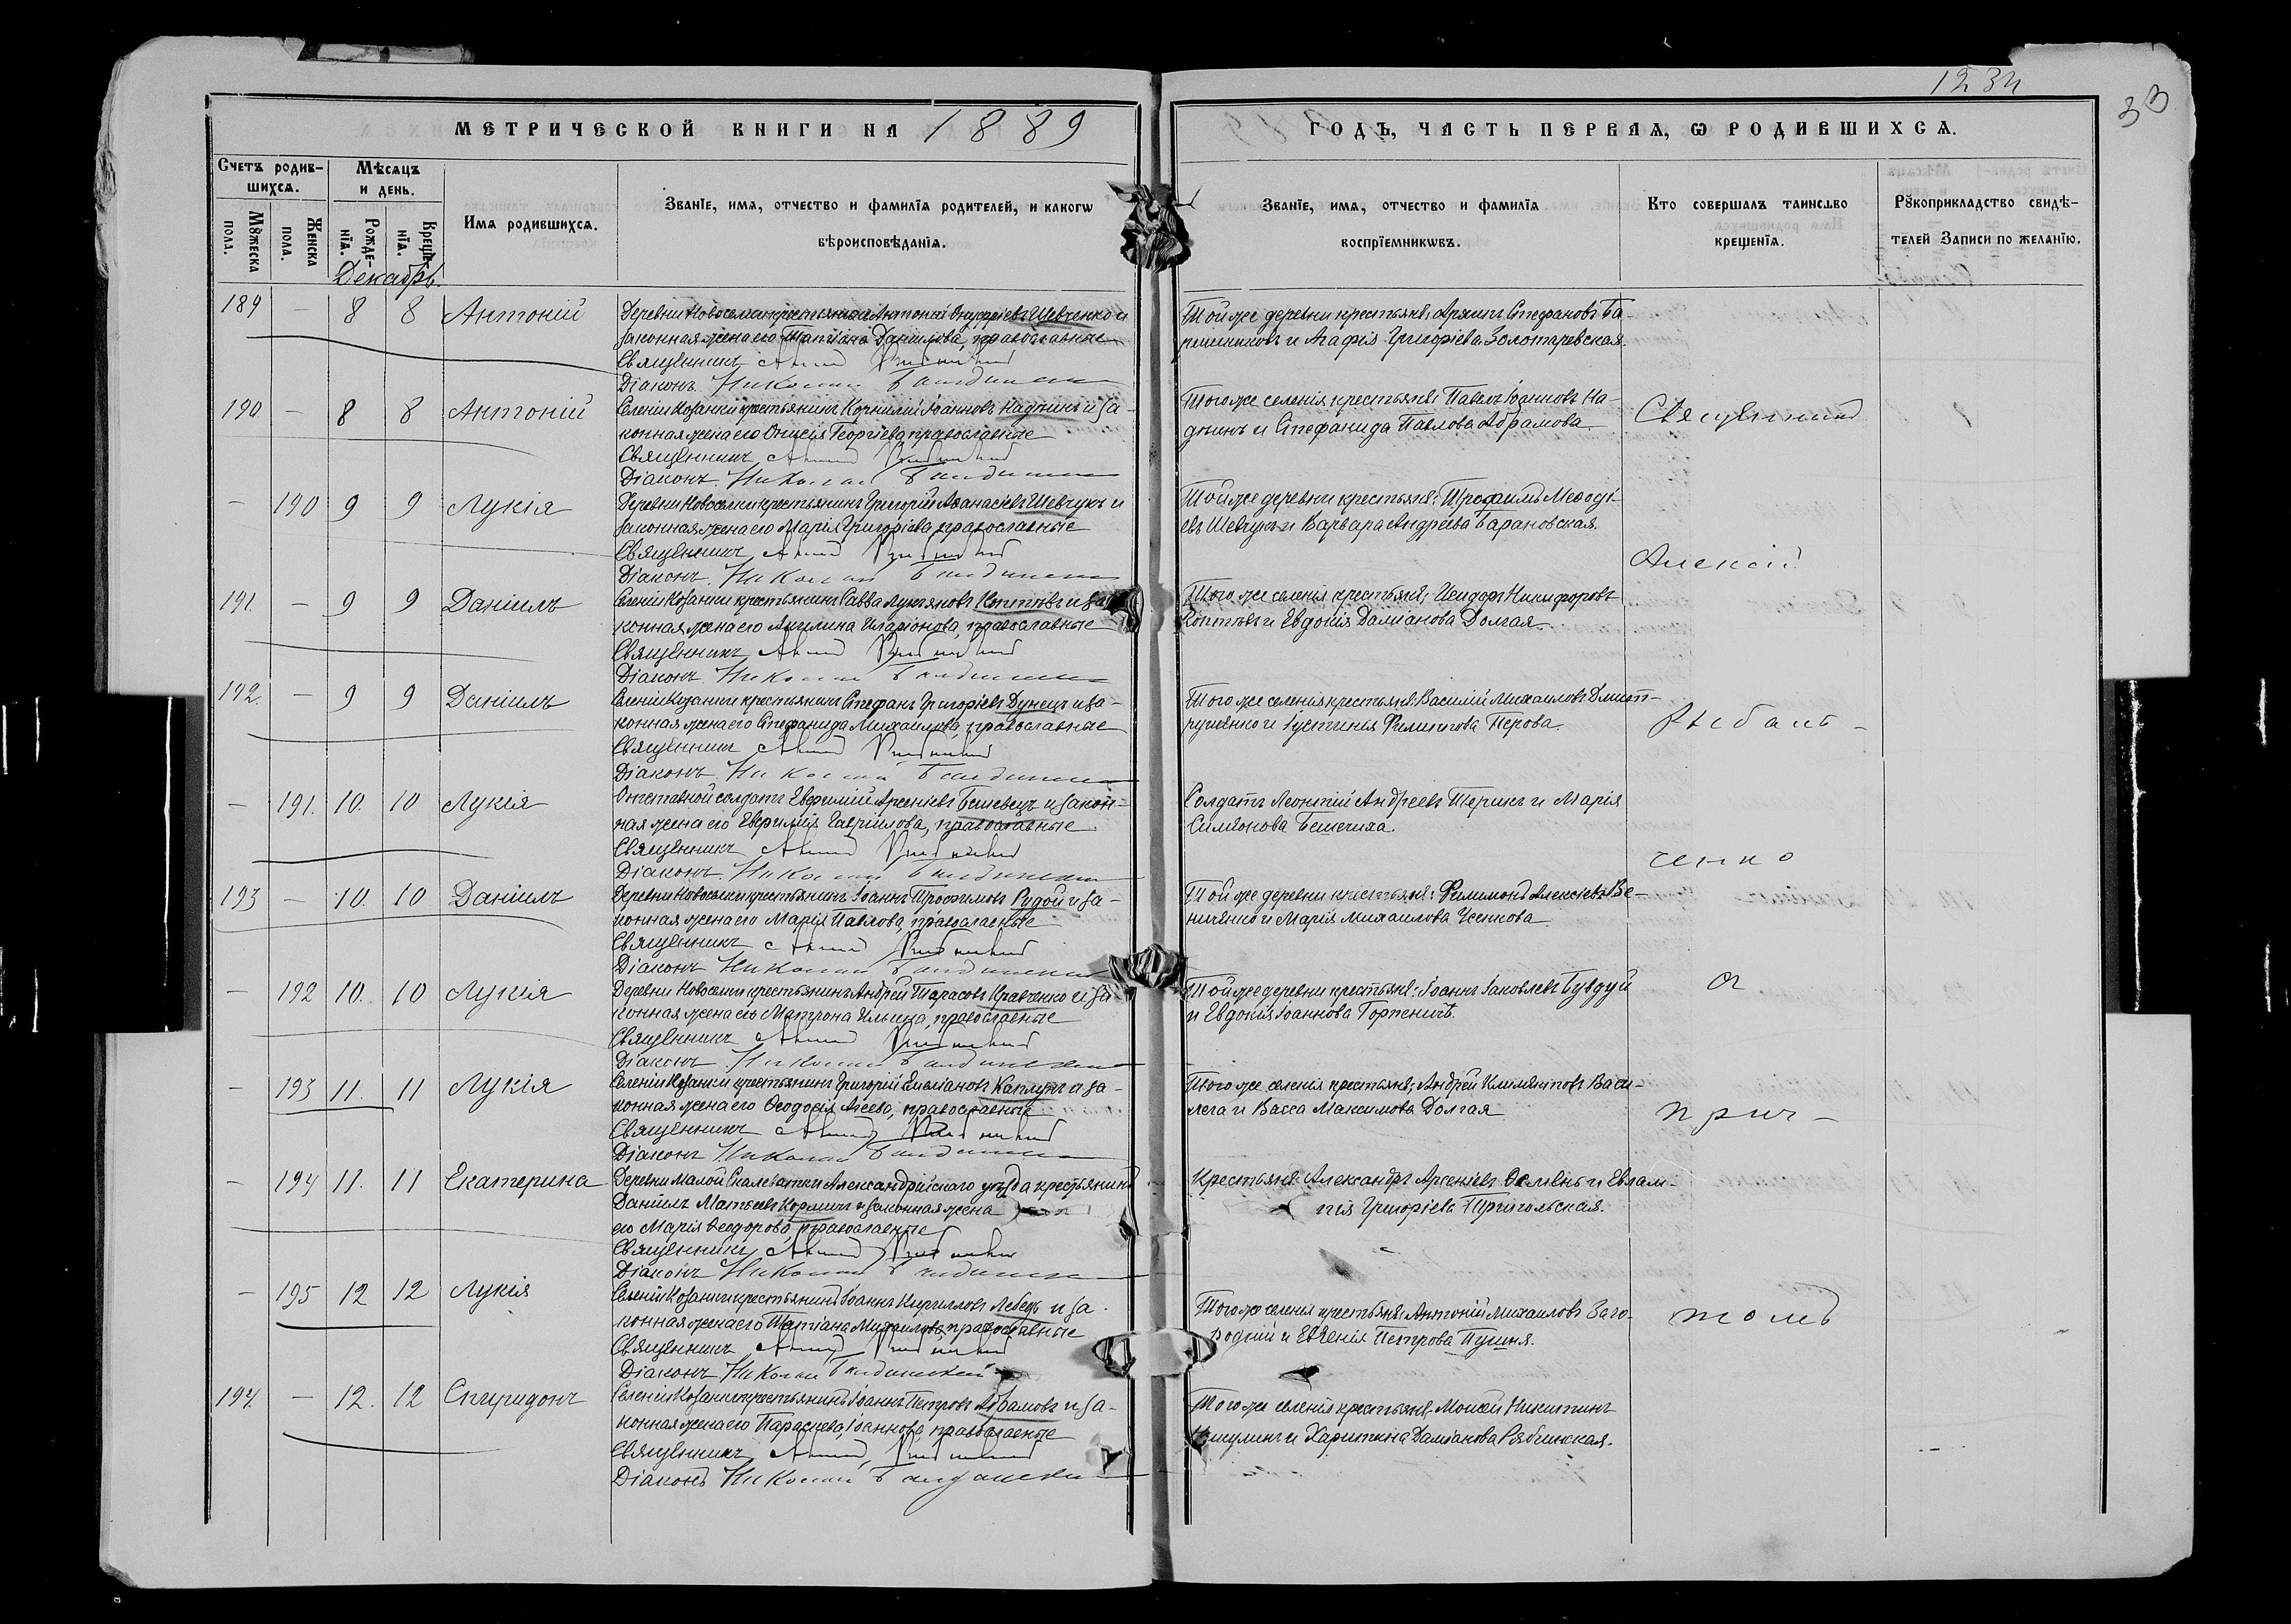 1234
33
МЕТРИЧЕСКОЙ КНИГИ НА 1889
ГОДЪ, ЧАСТЬ ПЕРВАѦ, Ѡ РОДИВШИХСѦ.
Счетъ родив-
шихсѧ.
Мѣсѧцъ
и день.
Мꙋжеска
пола.
Женска
пола.
Рожде-
нїѧ.
Креще-
нїѧ.
Имѧ родившихсѧ.
Званїе, имѧ, отчество и фамилїѧ родителей, и какогѡ
вѣроисповѣданїѧ.
Званїе, имѧ, отчество и фамилїѧ
воспрїемникѡвъ.
Кто совершалъ таинство
крещенїѧ.
Рꙋкоприкладство свидѣ-
телей записи по желанїю.
Декабрь.
189 — 8 8 Антоній
Деревни Новоселки крестьянинъ Антоній Онуфріевъ Шевченко и
законная жена его Татіана Даниилова, православные
Священникъ
Діаконъ Николай
Той же деревни крестьяне: Стефановъ
и Агафія Григоріева Золотаревская.
190 — 8 8 Антоній
Селенія Козанки крестьянинъ Корнилій Іоанновъ Надѣинъ и за-
конная жена его Онисія Георгіева православные
Священникъ
Діаконъ Николай
Того же селенія крестьяне: Павелъ Іоанновъ На-
дѣинъ и Стефанида Павлова Абрамова.
— 190 9 9 Лукія
Деревни Новоселки крестьянинъ Григорій Аѳанасіевъ Шевчукъ и
законная жена его Марія Григоріева православные
Священникъ
Діаконъ Николай
Той же деревни крестьяне: Трофимъ Меѳоді-
евъ Шевчукъ и Варвара Андреева Барановская.
191. — 9 9 Даніилъ
Селенія Козанки крестьянинъ Савва Лукьяновъ Коптѣвъ и за-
конная жена его Акилина Иларіонова, православные
Священникъ
Діаконъ Николай
Того же селенія крестьяне: Исидоръ Никифоровъ
Коптѣвъ и Евдокія Даміанова Долгая.
192. — 9 9 Даніилъ
Селенія Козанки крестьянинъ Стефанъ Григоріевъ Дунецъ и за-
конная жена его Стефанида Михаилова, православные
Священникъ
Діаконъ Николай
Того же селенія крестьяне: Василій Михаиловъ Дмит-
рушенко и Іустинья Филиппова Перова.
— 191. 10. 10 Лукія
Отставной солдатъ Евфимій Арсеніевъ и закон-
ная жена его Евфимія Гавриилова, православные.
Священникъ
Діаконъ Николай
Солдатъ Леонтій Андреевъ и Марія
Симеонова
193 — 10. 10 Даніилъ
Деревни Новоселки крестьянинъ Іоаннъ Трофимовъ Рудой и за-
конная жена его Марія Павлова, православные
Священникъ
Діаконъ Николай
Той же деревни крестьяне: Филимонъ Алексіевъ
и Марія Михаилова Усенкова.
— 192 10. 10 Лукія
Деревни Новоселки крестьянинъ Андрей Тарасовъ Кравченко и за-
конная жена его Матрона Ильина, православные
Священникъ
Діаконъ Николай
Той же деревни крестьяне: Іоаннъ Іаковлевъ
и Евдокія Іоаннова
— 193 11. 11 Лукія
Селенія Козанки крестьянинъ Григорій Емеліановъ Каплунъ и за-
конная жена его Ѳеодосія Агеева, православные
Священникъ
Діаконъ Николай
Того же селенія крестьяне: Андрей Климентовъ
и Васса Максимова Долгая
— 194 11. 11 Екатерина
Деревни Малой Скалеватки Александрійскаго уѣзда крестьянинъ
Даніилъ Матѳеевъ и законная жена
его Марія Ѳеодорова, православные
Священникъ
Діаконъ Николай
Крестьяне Александръ Арсеніевъ и Евлам-
пія Григоріева
— 195 12 12 Лукія
Селенія Козанки крестьянинъ Іоаннъ Кирилловъ Лебедь и за-
конная жена его Татіана Михаилова, православные
Священникъ
Діаконъ Николай
Того же селенія крестьяне: Антоній Михаиловъ Заго-
родній и Евгенія Петрова
194. — 12. 12 Спиридонъ
Селенія Козанки крестьянинъ Іоаннъ Петровъ Абрамовъ и за-
конная жена его Параскева Іоаннова, православные
Священникъ
Діаконъ Николай
Того же селенія крестьяне: Моисей Никитинъ
и Харитина Даміанова Рябинская.
Священникъ
Алексій
Рыбаль-
ченко
съ
прич-
томъ